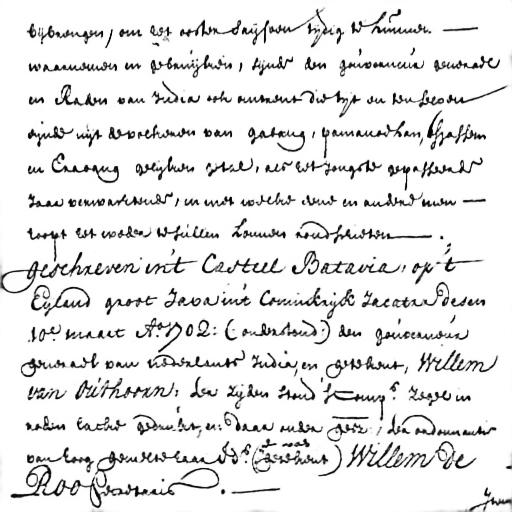 bijbrengen, om het ooster saijsoen tydig te kunnen
waarnemen en gebruijken, sijnde den gouverneur generael
en Raden van India ook omtrent die tyt en ten selven
eijnde uijt de rocheren van gabang, pamanoekan,
en gelyken getal, als het Jongste gepasseerde
Jaar verwachtende, en met welke dene en andere men
hoopt het weder te sullen kunnen rondschieten.
Geschreven in't Casteel Batavia, op't
Eyland groot Java in't Coninckryk Jacatra desen
10e maart Ao 1702: (:onderstond:) den gouverneur
generael van nederlants India, en getekent, Willem
van Outhoorn: ter zyden stond 's Comps. Zegel in
roden lacke gedrukt, en: daar onder gesz:, ter ordonnantie
van hoog gemelte haar Eds. (was getekent) Willem de
Roo Secretaris.